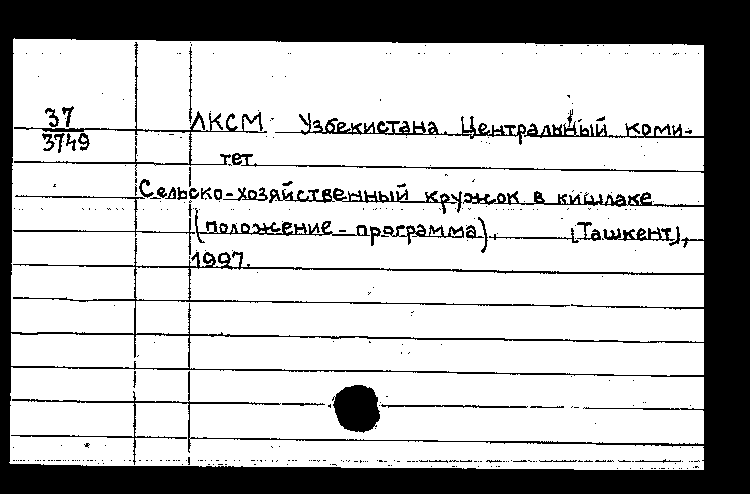 37
3749
ЛКСМ Узбекистана. Центральный коми-
тет.
Сельско-хозяйственный кружок в кишлаке
(положение - программа). [Ташкент],
1927.